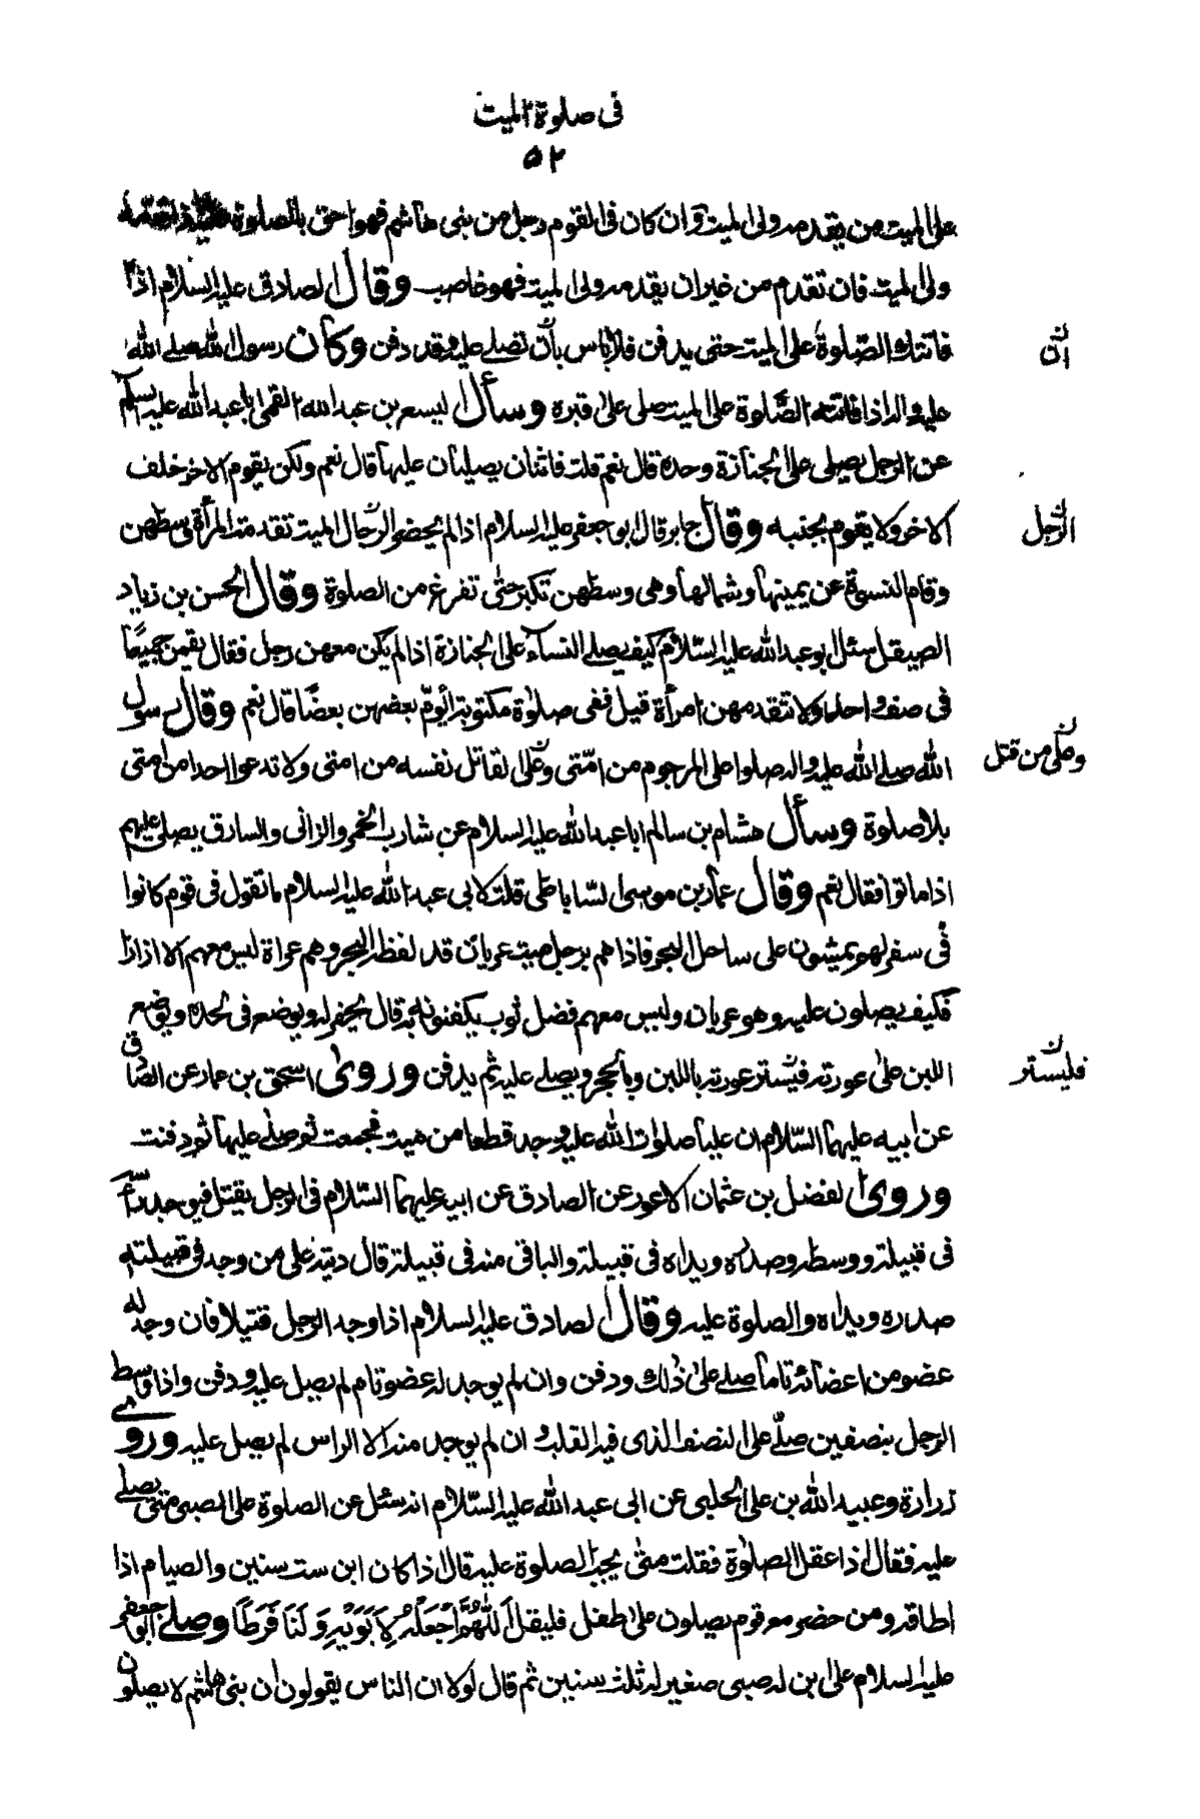 فی صلوة المیت
۵۲
علی المیت من یقدمه ولی المیت وان کان فی القوم رجل من بنی هاشم فهو احق بالصلوة علیه اذا قدمه
ولی المیت فان تقدم من غیر ان یقدمه ولی المیت فهو غاصب وقال الصادق علیه السلام اذا
فاتتك الصّلوة علی المیت حتی یدفن فلا باس بان تصلے علیه وقد دفن وکان رسول الله صلے الله
ان
علیه واله اذا فاتته الصّلوة علی المیت صلی علی قبره وسأل الیسع بن عبد الله القمی ابا عبد الله علیه السلم
عن الرجل یصلی علی الجنازة وحده قال نعم قلت فاثنان یصلیان علیها قال نعم ولکن یقوم الاخر خلف
الاخر ولا یقوم بجنبه وقال جابر قال ابو جعفر علیه السلام اذا لم یحضر الرجال المیت تقدمت المرأة وسطهن
الرجل
وقام النسوة عن یمینها وشمالها وهی وسطهن تکبر حتی تفرغ من الصلوة وقال الحسن بن زیاد
الصیقل سئل ابو عبد الله علیه السّلام کیف یصلے النسآء علی الجنازة اذا لم یکن معهن رجل فقال یقمن جمیعًا
فی صف واحد ولا تتقدمهن امرأة قیل ففی صلوة مکتوبة ایؤمّ بعضهن بعضًا قال نعم وقال رسول
الله صلے الله علیه واله صلوا علی المرجوم من امّتی وعلی القاتل نفسه من امتی ولا تدعوا احدا من امتی
وعلی من قتل
بلا صلوة وسأل هشام بن سالم ابا عبد الله علیه السلام عن شارب الخمر والزانی والسارق یصلی علیهم
اذا ماتوا فقال نعم وقال عمار بن موسی الساباطی قلت لابی عبد الله علیه السلام ما تقول فی قوم کانوا
فی سفر لهم یمشون علی ساحل البحر فاذا هم برجل میت عریان قد لفظه البحر وهم عراة لیس معهم الا ازارًا
فکیف یصلون علیه وهو عریان ولیس معهم فضل ثوب یکفنونه به قال یحفر له ویوضع فی لحده ویوضع
اللبن علی عورته فیستر عورته باللبن وبالحجر ویصلے علیه ثم یدفن وروی اسحق بن عمار عن الصادق
فلیستر
عن ابیه علیهما السّلام ان علیا صلوات الله علیه وجد قطعا من میت فجمعت ثم صلی علیها ثم دفنت
وروی الفضل بن عثمان الاعور عن الصادق عن ابیه علیهما السّلام فی الرجل یقتل فیوجد رأسه
فی قبیلة ووسطه وصدره ویداه فی قبیلة والباقی منه فی قبیلة قال دیته علی من وجد فی قبیلته
صدره ویداه والصلوة علیه وقال الصادق علیه السلام اذا وجد الرجل قتیلا فان وجد له
عضو من اعضائه تاما صلے علی ذلك ودفن وان لم یوجد له عضو تام لم یصل علیه ودفن واذا وسط
الرجل بنصفین صلّے علی النصف الذی فیه القلب وان لم یوجد منه الا الراس لم یصل علیه وروی
زرارة وعبید الله بن علی الحلبی عن ابی عبد الله علیه السّلام انه سئل عن الصلوة علی الصبی متی یصلے
علیه فقال اذا عقل الصلوة فقلت متی یجب الصلوة علیه قال اذا کان ابن ست سنین والصیام اذا
اطاقه ومن حضر مع قوم یصلون علی طفل فلیقل اَللّٰهُمَّ اجْعَلْهُ لِاَبَوَیْهِ وَلَنَا فَرَطًا وصلے ابو جعفر
علیه السلام علی ابن له صبی صغیر له ثلث سنین ثم قال لولا ان الناس یقولون ان بنی هاشم لا یصلون